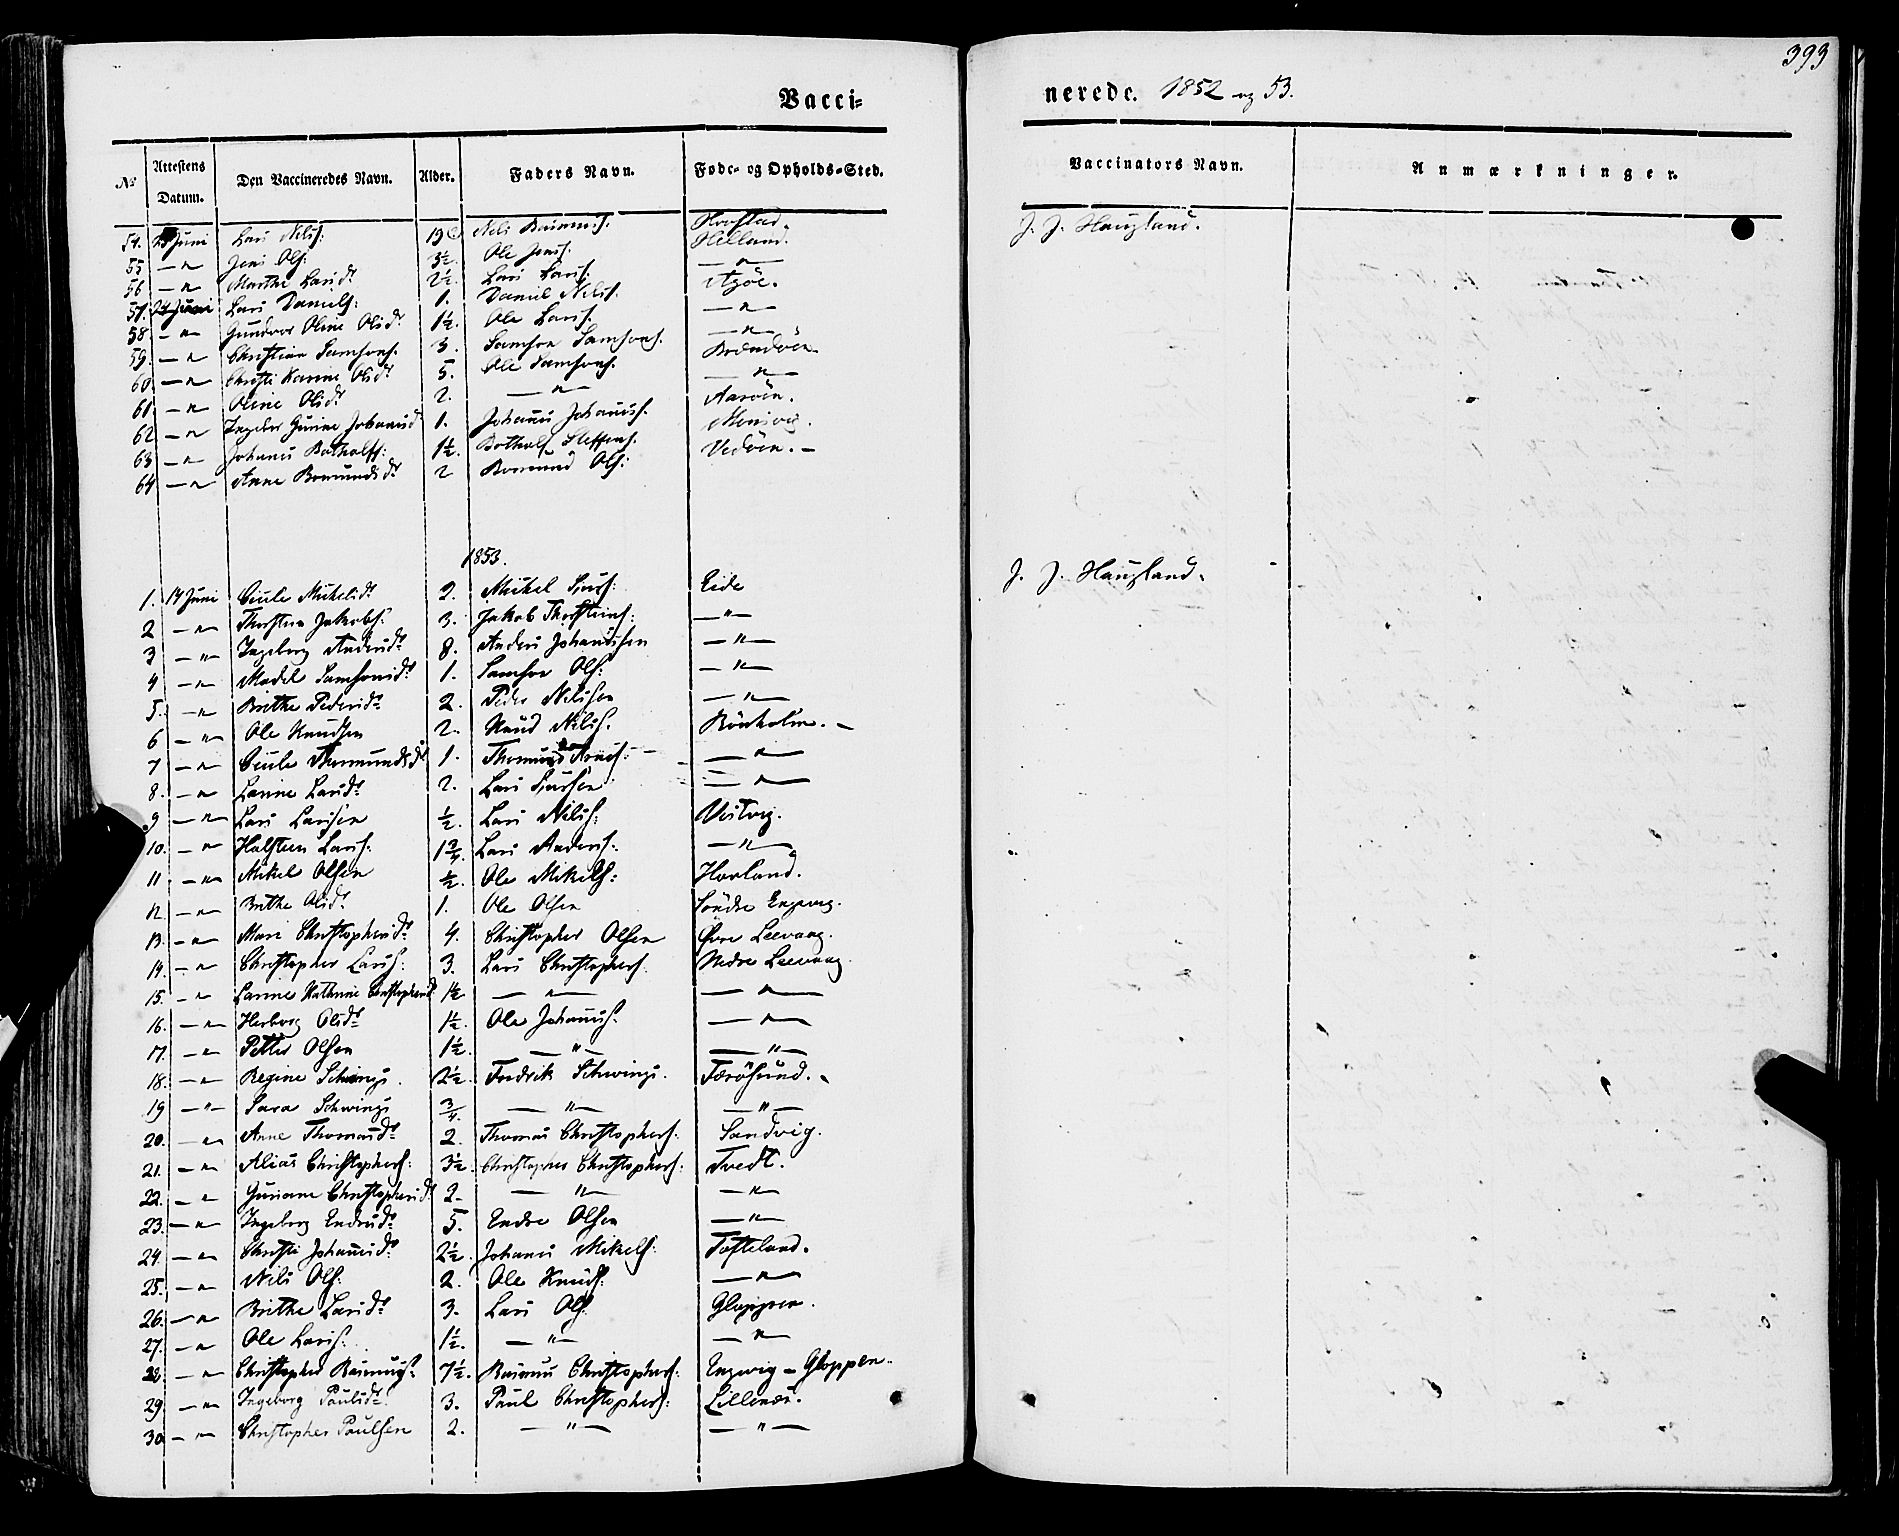 393
Vacci=
nerede. 1852 og 53.
No Attestens Datum. Den Vaccineredes Navn. Alder. Faders Navn. Føde- og Opholds-Sted. Vaccinators Navn. Anmærkninger.
54. Juni Lars Nils: Nils J. J. Haugland.
55 — " Jens Ols: 3½. Ole Jens: Helland.
56 — " Marthe Larsdr 2½. Lars Lars: — " —
57. 24 Juni Lars Daniels: 1. Daniel Nils: Agøe.
58. — " Gundvor Oline Olsdr 1½. Ole Lars: — " —
59. — " Christian Samsons. 3. Samson Samsons. — " —
60. — " Christi Karine Olsdr 5. Ole Samsons. Brændøen.
61. — " Oline Olsdr 2. — " — — " —
62 — " Ingebor Gurine Johannsd 1. Johannes Johannes: Aarøen.
63. — " Johannes Botholfs: 1½. Botholf Steffens. .
64. — " Anne Bormundsdr 2 Bormund Ols: Vedøen. —
1853.
1. 14 Juni Cicile Mikelsdr 2. Mikel Sjurs: Eide J. J. Haugland.
2 — " Thorstein Jakobs: 3. Jakob Thorsteins: — " —
3 — " Ingeborg Andersdr 8. Anders Johannessen — " —
4 — " Madel Samsonsdr 1. Samson Ols: — " —
5. — " Brithe Pedersdr 2. Peder Nilssen — " —
6 — " Ole Knudsen 2. Knud Nils: Bønholm. —
7 — " Cicile Thormundsdr 1. Thormund — " —
8. — " Larine Larsdr 2. Lars Sjursen — " —
9 — " Lars Larsen ½. Lars Nils: Vestvig.
10. — " Halsteen Lars: 1¾. Lars Anders: — " —
11 — " Mikel Olsen ½. Ole Mikels: Havland.
12. — " Brithe Olsdr 1. Ole Olsen Søndre Engevig.
13. — " Mari Christophersdr 4. Christopher Olsen Øvre Leevaag.
14. — " Christopher Lars: 3. Lars Christophers. Nedre Leevaag
15. — " Larine Kathrine Christophersd 1½ — " — — " —
16. — " Herborg Olsdr 1½. Ole Johannes: — " —
17. — " Petter Olsen 1½. — " — — " —
18. — " Regine Schwings. 2½. Fredrik Schwings. Færøsund.
19 — " — Sara Schwings ¾. — " — — " —
20. — " Anne Thomasdr 2. Thomas Christophers. Sandvig.
21. — " Alias Christophers: 3½. Christopher Christophers: Tvedt.
22. — " Guriane Christophersd 2- — " — — " —
23. — " Ingeborg Endresdr 5. Endre Olsen — " —
24. — " Christi Johannesdr 2½. Johannes Mikels: Tofteland.
25. — " Nils Ols: 2. Ole Knuds: — " —
26. — " Brithe Larsdr 3. Lars Ols: Gloppen.
27. — " Ole Lars: 1½. — " — — " —
28 — " Christopher Rasmus: 7½. Rasmus Christophers: Engevig - Gloppen.
29. — " Ingeborg Paulsdr 3. Paul Christophers: Lillenæs.
30 — " Christopher Paulsen 2. — " — — " —